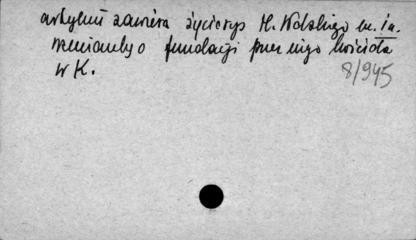 artykuł zawiera życiorys H. Wolskiego m. in.
wzmiankę o fundacji przez niego kościoła
w K.
8/945